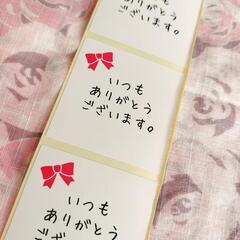 ありがとう
ございます。
いつも
ありがとう
ございます。
いつも
ありがとう
ございます